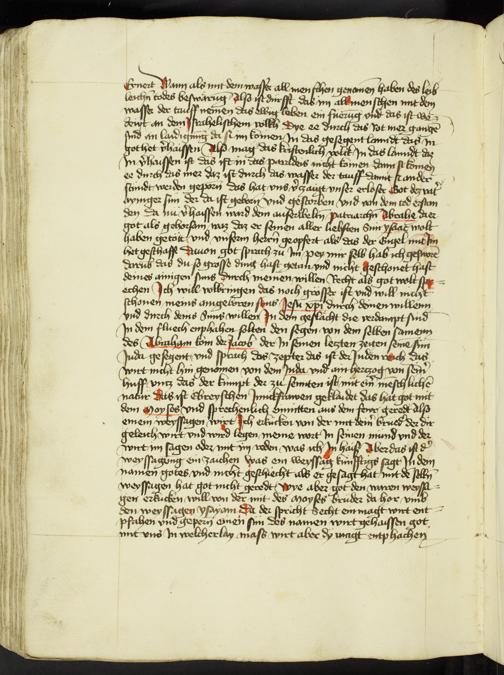 wann als mit dem wasser all menschen genomen haben des leib
todes also ist durch das im all menschen mit dem
wasser der tauff nemen das ewig leben ein und das ist
an dem Israhelischen volkh Dye ee durch das rot mer
sind an da sy in komen In das gesegent lanndt das In
got het Also mag das kristenlich volk In das lanndt das
In ist das ist in das paradeis nicht komen dann sy komen
ee durch das mer das ist durch das wasser der tauff damit sy ander
stundt werden geporn das hat uns unser erloser Got der
sun der da ist geborn und gestorben und von dem tod erstan
den da ward dem patriarchen Abrahe der
got als gehorsam waz daz er seinen aller liebsten Sun ysaac wolt
haben getott und unserm herrn geopfert als das der Engel mit Im
het geschafft Davon got sprach zu Im pey mir selb hab ich gesworn
darumb das du so grosse ding hast getan und nicht geschonet hast
deines ainigen suns durch meinen willen Recht als got wolt
Ich will volbringen das noch grosser ist und will nicht
schonen meins aingeboren suns Jesu xpi durch deinen willenn
und durch deins Suns willen In dem geschlächt die verdampt sind
In dem fluech enphahen solten den segen von dem selben samenn
des Abraham kom der Jacob der In seinen letzten zeiten seinen sun
Juda gesegent und sprach das zepter das ist der Juden das
wirt nicht hin genomen von dem Juda und ain herczog von seiner
huff uncz das der kumpt der zu senntten ist mit ein menschlicher
natur das ist Ebreyschen Junckfrawen geklaidet das hat got mit
dem Moyses und sprechenlich enmitten aus dem fewr geredt Also
einem weyssagen wirt Ich erkücken von der mit dem bruder der dir
geleich wirt und wird legen meine wort in seinen mund und der
wirt in sagen oder mit in reden was ich In haiss Aber das ist der
weyssagung ein zaichen was ein weyssag kunfftigs sagt In dem
namen gotes und nicht geschiecht als er gesagt hat mit de selben
weyssagen hat got nicht geredt wye aber got den waren weyssa-
gen erkücken will von der mit des Moyses bruder da hor und
den weyssagen ysayam da der spricht Secht ein magt wirt ent-
phahen und geperen einen sun des namen wirt gehaissen got
mit uns In welcherlay mass wirt aber dy magt entphachen